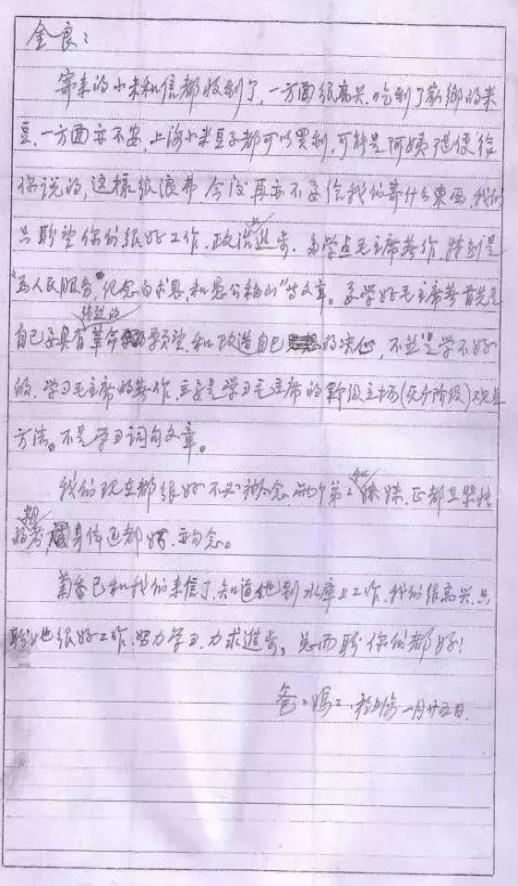 金良：
寄来的小米和信都收到了，一方面很高兴，吃到了家鄉的米
豆，一方面亦不安，上海小米豆子都可以買到，可能是阿姨随便给
你说的，这樣很浪费，今后再亦不要给我们寄什么東西，我们
只盼望你们很好工作，政治上進步，多学点毛主席著作，特别是
"为人民服务"，纪念白求恩，和愚公移山"等文章。要学好毛主席著首先是
自己要具有革命的願望，和改造自己的决心，不然是学不好
的，学习毛主席的著作，主要是学习毛主席的阶级立场(无产阶级)观点
方法。不是学习词句文章。
我们现在都很好不必掛念，两个弟弟和妹妹，
身体也都好，勿念。
菊香已和我们来信了，知道他到水库上工作，我们很高兴，只
盼他很好工作，努力学习，力求進步，总而盼你们都好！
爸爸媽媽，於上海一月廿五日